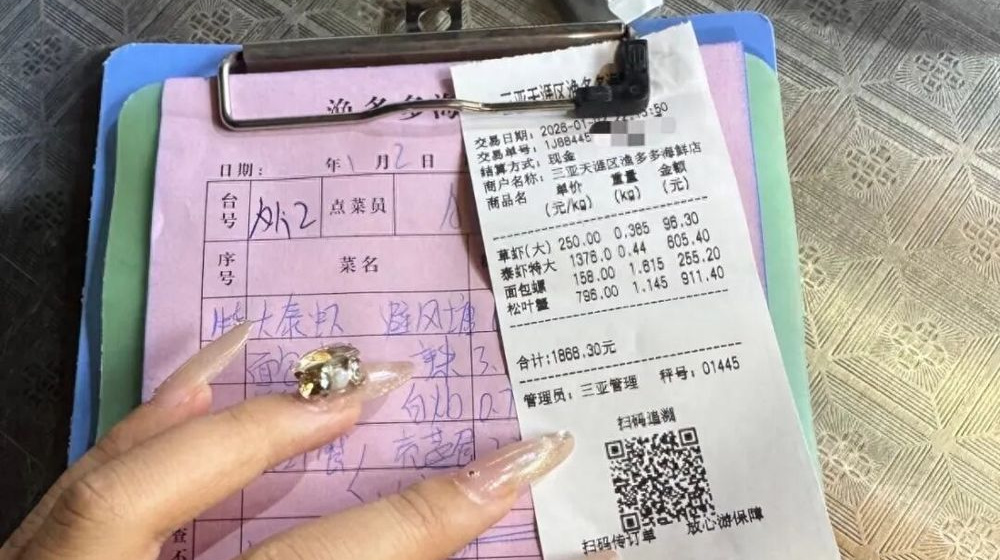 渔多多海
日期： 年1月2日
台号 外2 点菜员
序号 菜名
特大泰虾 避风塘
面包 辣 3.
白灼 0.7
查不
三亚天涯区渔多多海
交易日期：2026-01-
交易单号：1J88445
结算方式：现金
商户名称：三亚天涯区渔多多海鲜店
商品名 单价 重量 金额
(元/kg) (kg) (元)
草虾(大) 250.00 0.385 96.30
泰虾特大 1376.0 0.44 605.40
面包螺 158.00 1.615 255.20
松叶蟹 796.00 1.145 911.40
合计：1868.30元
管理员：三亚管理 秤号：01445
扫码追溯
扫码传订单 放心游保障